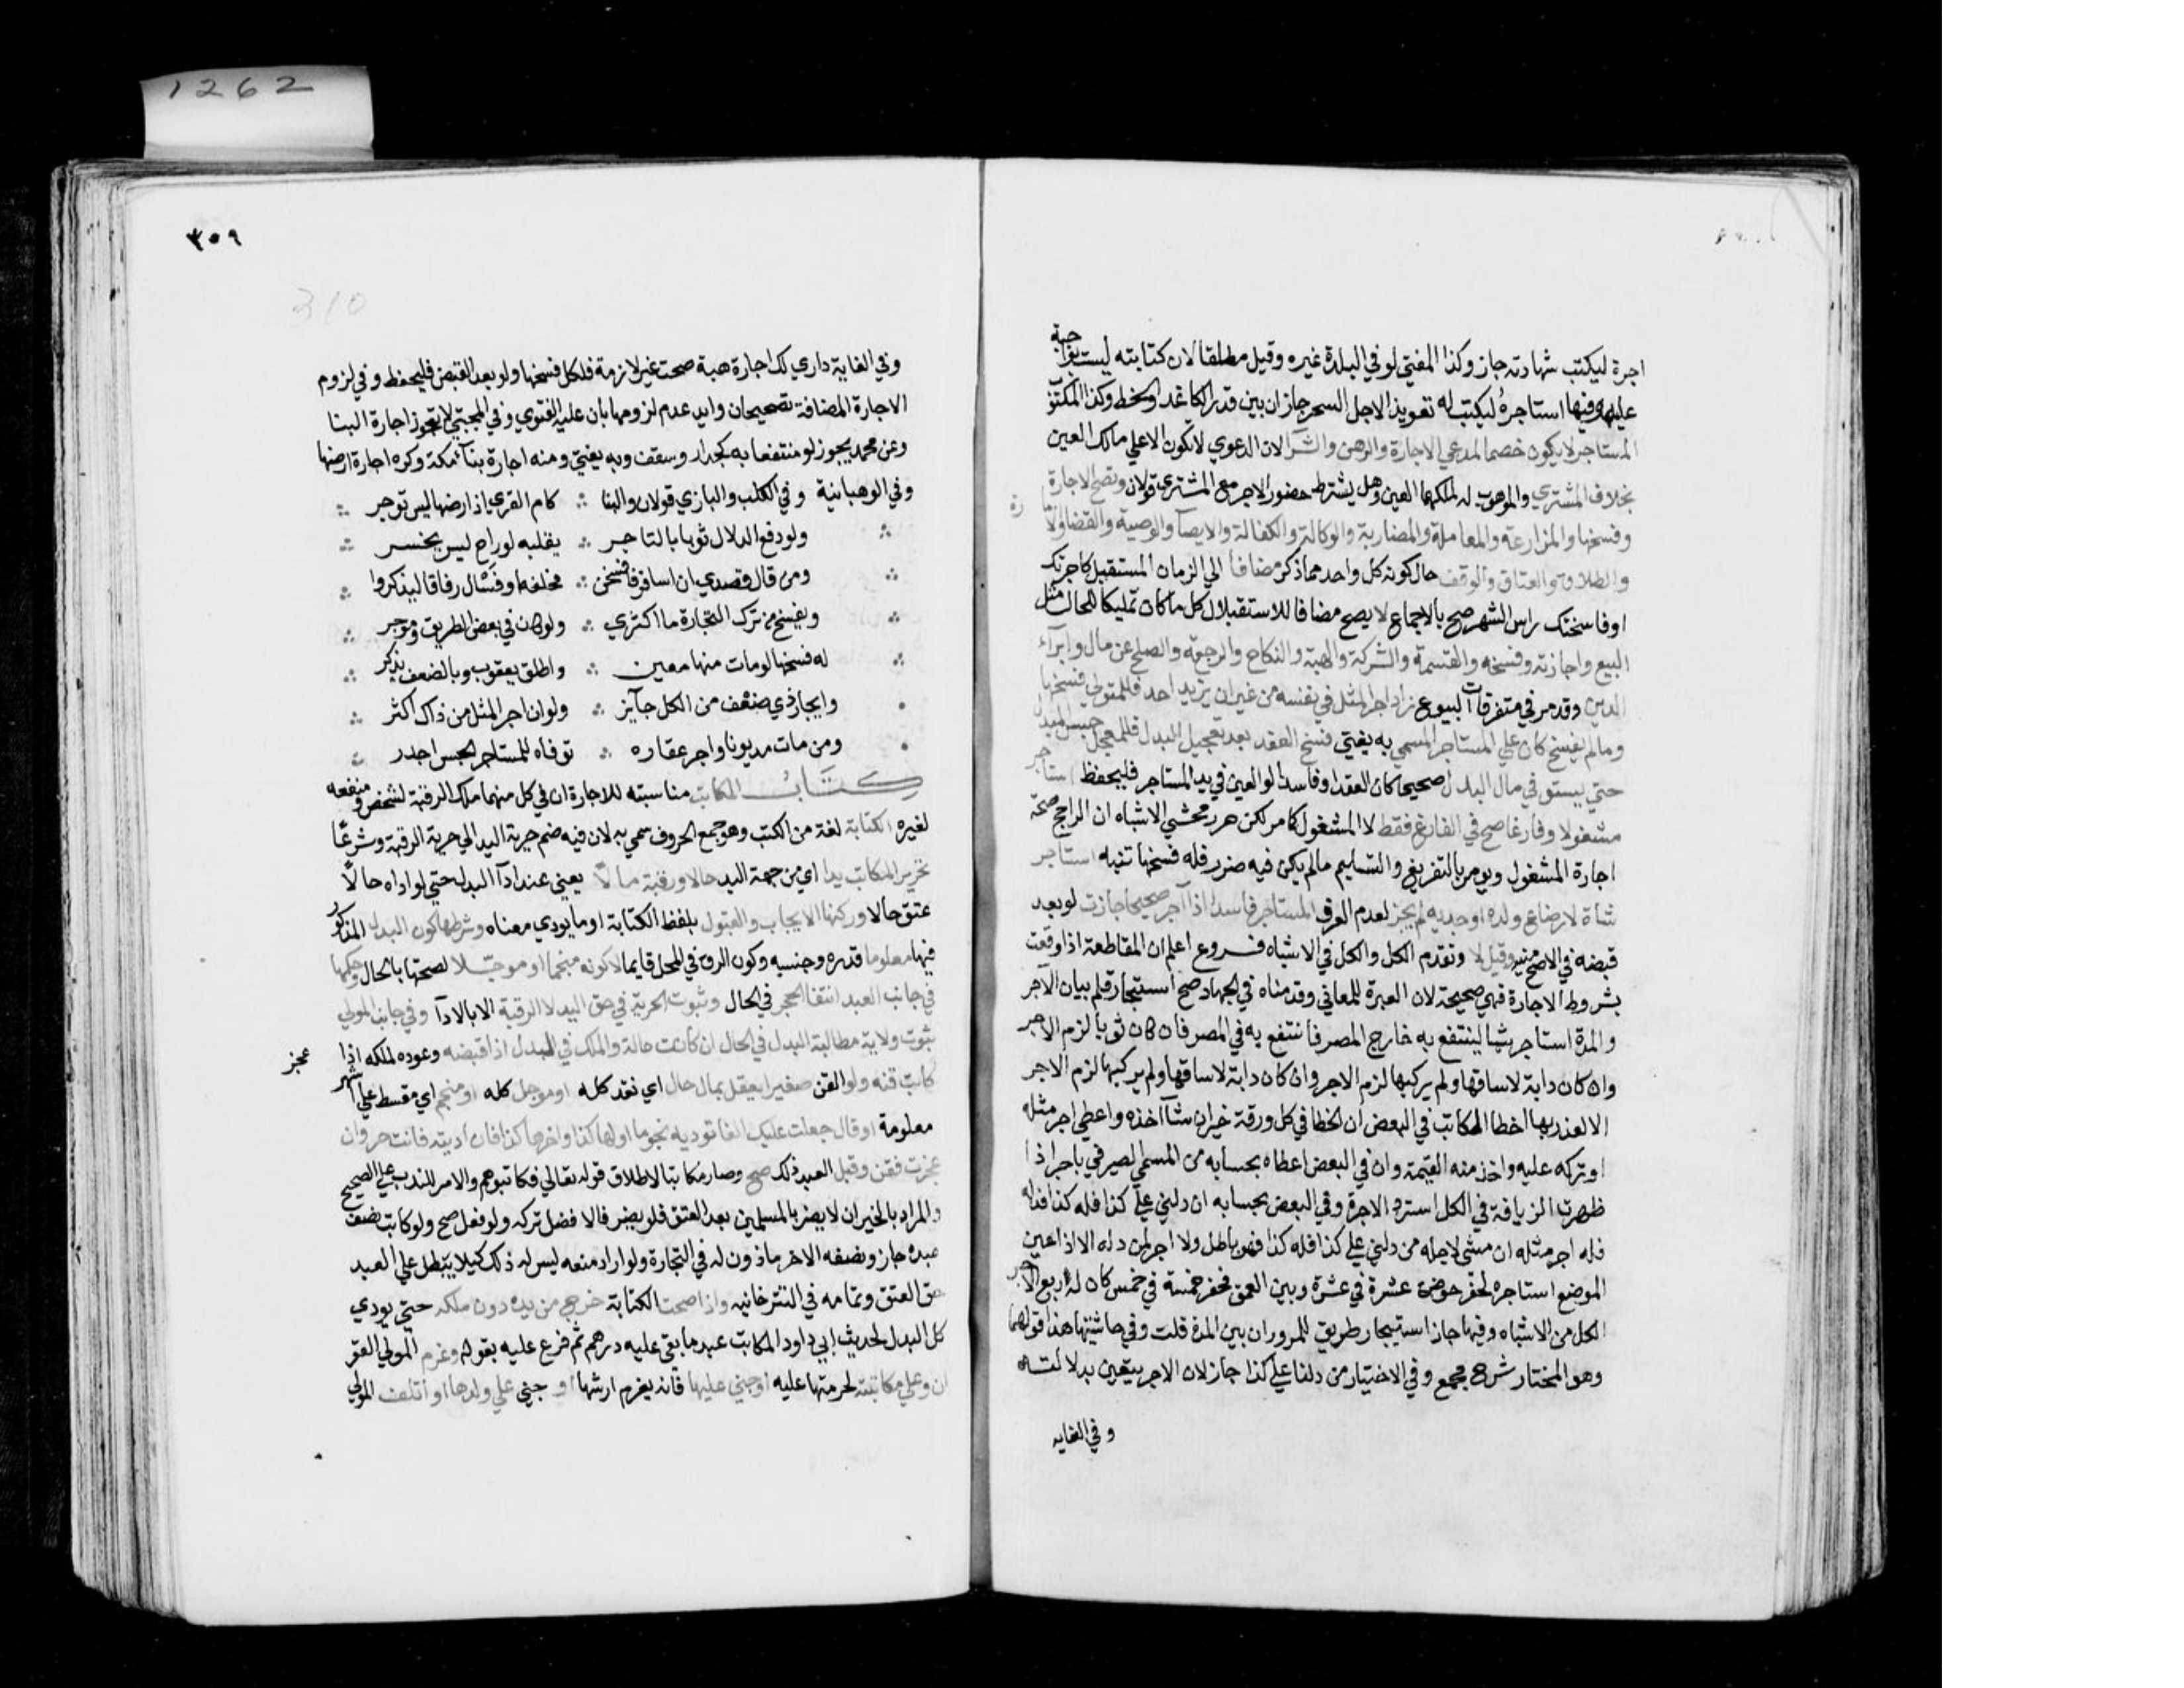 اجرة ليكتب شهادته جاز وكذا المفتي لو في البلدة غيره وقيل مطلقا لان كتابته ليست بواجبة
عليه وفيها استاجره ليكتب له تعويذ الاجل السحر جاز ان بين قدر الكاغد والخط وكذا المكتوب
المستاجر لا يكون خصما لمدعي الاجارة والرهن والشرآ لان الدعوي لا تكون الا علي مالك العين
بخلاف المشتري والموهوب له لملكهما العين وهل يشترط حضور الاجر مع المشتري قولان وتصح الاجارة
وفسخها والمزارعة والمعاملة والمضاربة والوكالة والكفالة والايصآ والوصية والقضا والامارة
والطلاق والعتاق والوقف حال كونه كل واحد مما ذكر مضافا الي الزمان المستقبل كاجرتك
اوفاسختك راس الشهر صح بالاجماع لا يصح مضافا للاستقبال كل ما كان تمليكا للحال مثل
البيع واجازته وفسخه والقسمة والشركة والهبة والنكاح والرجعة والصلح عن مال وابرآء
الدين وقد مر في متفرقات البيوع زاد اجر المثل في نفسه من غير ان يزيد احد فللمتولي فسخها
ومالم يفسخ كان علي المستاجر المسمي به يفتي فسخ العقد بعد تعجيل البدل فللمعجل حبس المبدل
حتي يستوفي مال البدل صحيحا كان العقد او فاسدا لو العين في يد المستاجر فليحفظ استاجر
مشغولا وفارغا صح في الفارغ فقط لا المشغول كما مر لكن حرر محشي الاشباه ان الراجح صحة
اجارة المشغول ويومر بالتفريغ والتسليم مالم يكن فيه ضرر فله فسخها تنبه استاجر
شاة لارضاع ولده او جديه لم يجز لعدم العرف المستاجر فاسدا اذا آجر صحيحا جازت لو بعد
قبضه في الاصح منير وقيل لا وتقدم الكل والكل في الاشباه فروع اعلم ان المقاطعة اذا وقعت
بشروط الاجارة فهي صحيحة لان العبرة للمعاني وقدمناه في الجهاد صح استيجار قلم ببيان الاجر
والمدة استاجر شيا لينتفع به خارج المصر فانتفع به في المصر فان كان ثوبا لزم الاجر
وان كان دابة لا ساقها ولم يركبها لزم الاجر وان كان دابة لا ساقها ولم يركبها لزم الاجر
الا لعذر بها اخطا الكاتب في البعض ان الخطا في كل ورقة خير ان شآ اخذه واعطي اجر مثله
او تركه عليه واخذ منه القيمة وان في البعض اعطاه بحسابه من المسمي الصيرفي باجر اذا
ظهرت الزيافة في الكل استرد الاجرة وفي البعض بحسابه ان دلني علي كذا فله كذا فدله
فله اجر مثله ان مشي لاجله من دلني علي كذا فله كذا فهو باطل ولا اجر لمن دله الا اذا عين
الموضع استاجره لحفر حوض عشرة في عشرة وبين العمق فحفر خمسة في خمس كان له اربع الاجر
الكل من الاشباه وفيها جاز استيجار طريق للمرور ان بين المدة قلت وفي حاشيتها هذا قولهما
وهو المختار شرح مجمع وفي الاختيار من دلنا علي كذا جاز لان الاجر يتعين بدلالته
وفي الغايه
٣٠٩
310
وفي الغاية داري لك اجارة هبة صحت غير لازمة فلكل فسخها ولو بعد القبض فليحفظ وفي لزوم
الاجارة المضافة تصحيحان وايد عدم لزومها بان عليه الفتوي وفي المجتبي لا تجوز اجارة البنا
وعن محمد يجوز لو منتفعا به كجدار وسقف وبه يفتي ومنه اجارة بنآ مكة وكره اجارة ارضها
وفي الوهبانية وفي الكلب والبازي قولان والبنا ∴ كام القري اذ ارضها ليس توجر
ولو دفع الدلال ثوبا بالتاجر ∴ يقلبه لو راح ليس يخسر
ومن قال قصدي ان اسافر فافسخن ∴ فحلفه او فسْال رفاقا ليذكروا
ويفسخ من ترك التجارة ما اكتري ∴ ولو كان في بعض الطريق وموجر
له فسخها لو مات منها معين ∴ واطلق يعقوب وبالضعف يذكر
وايجار ذي ضعف من الكل جآيز ∴ ولو ان اجر المثل من ذاك اكثر
ومن مات مديونا واجر عقاره ∴ توفاه للمستاجر الحبس اجدر
كتاب المكاتب مناسبته للاجارة ان في كل منهما ملك الرقبة لشخص ومنفعه
لغيره الكتابة لغة من الكتب وهو جمع الحروف سمي به لان فيه ضم حرية اليد الي حرية الرقبة وشرعًا
تحرير المكاتب يدا اي من جهة اليد حالا ورقبة مالًا يعني عند ادآ البدل حتي لو اداه حالًا
عتق حالا وركنها الايجاب والقبول بلفظ الكتابة او ما يودي معناه وشرطها كون البدل المذكور
فيها معلوما قدره وجنسه وكون الرق في المحل قايما لا كونه منجما او موجلا لصحتها بالحال وحكمها
في جانب العبد انتفا الحجر في الحال وثبوت الحرية في حق اليد لا الرقبة الا بالادآ وفي جانب المولي
ثبوت ولاية مطالبة البدل في الحال ان كانت حالة والملك في البدل اذا قبضه وعوده لملكه اذا عجز
كاتب قنه ولو القن صغيرا يعقل بمال حال اي نقد كله او موجل كله او منجم اي مقسط علي اشهر
معلومة او قال جعلت عليك الفا توديه نجوما اولها كذا واخرها كذا فان اديته فانت حر وان
عجزت فقن وقبل العبد ذلك صح وصار مكاتبا لاطلاق قوله تعالي فكاتبوهم والامر للندب علي الصحيح
والمراد بالخير ان لا يضر بالمسلمين بعد العتق فلو يضر فالافضل تركه ولو فعل صح ولو كاتب نصف
عبده جاز ونصفه الاخر ماذون له في التجارة ولو اراد منعه ليس له ذلك كيلا يبطل علي العبد
حق العتق وتمامه في التترخانيه واذا صحت الكتابة خرج من يده دون ملكه حتي يودي
كل البدل لحديث ابي داود المكاتب عبد ما بقي عليه درهم ثم فرع عليه بقوله وغرم المولي العقر
ان وطي مكاتبته لحرمتها عليه او جني عليها فانه يغرم ارشها او جني علي ولدها او اتلف المولي
1262